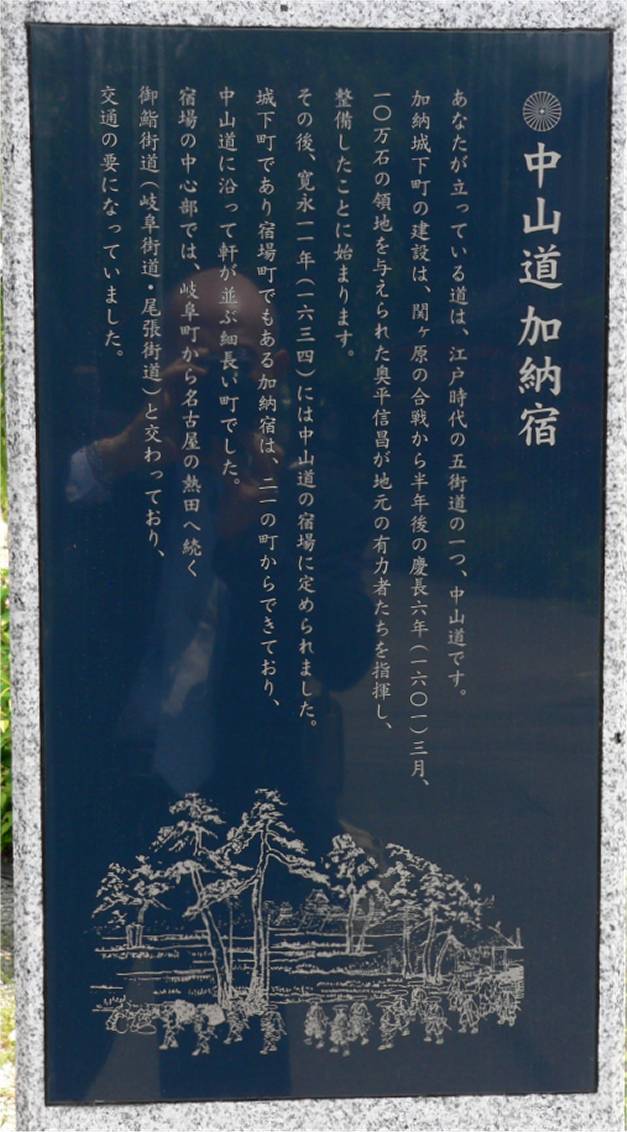 中山道加納宿
あなたが立っている道は、江戸時代の五街道の一つ、中山道です。
加納城下町の建設は、関ヶ原の合戦から半年後の慶長六年(一六〇一)三月、
一〇万石の領地を与えられた奥平信昌が地元の有力者たちを指揮し、
整備したことに始まります。
その後、寛永一一年(一六三四)には中山道の宿場に定められました。
城下町であり宿場町でもある加納宿は、二一の町からできており、
中山道に沿って軒が並ぶ細長い町でした。
宿場の中心部では、岐阜町から名古屋の熱田へ続く
御鮨街道(岐阜街道・尾張街道)と交わっており、
交通の要になっていました。